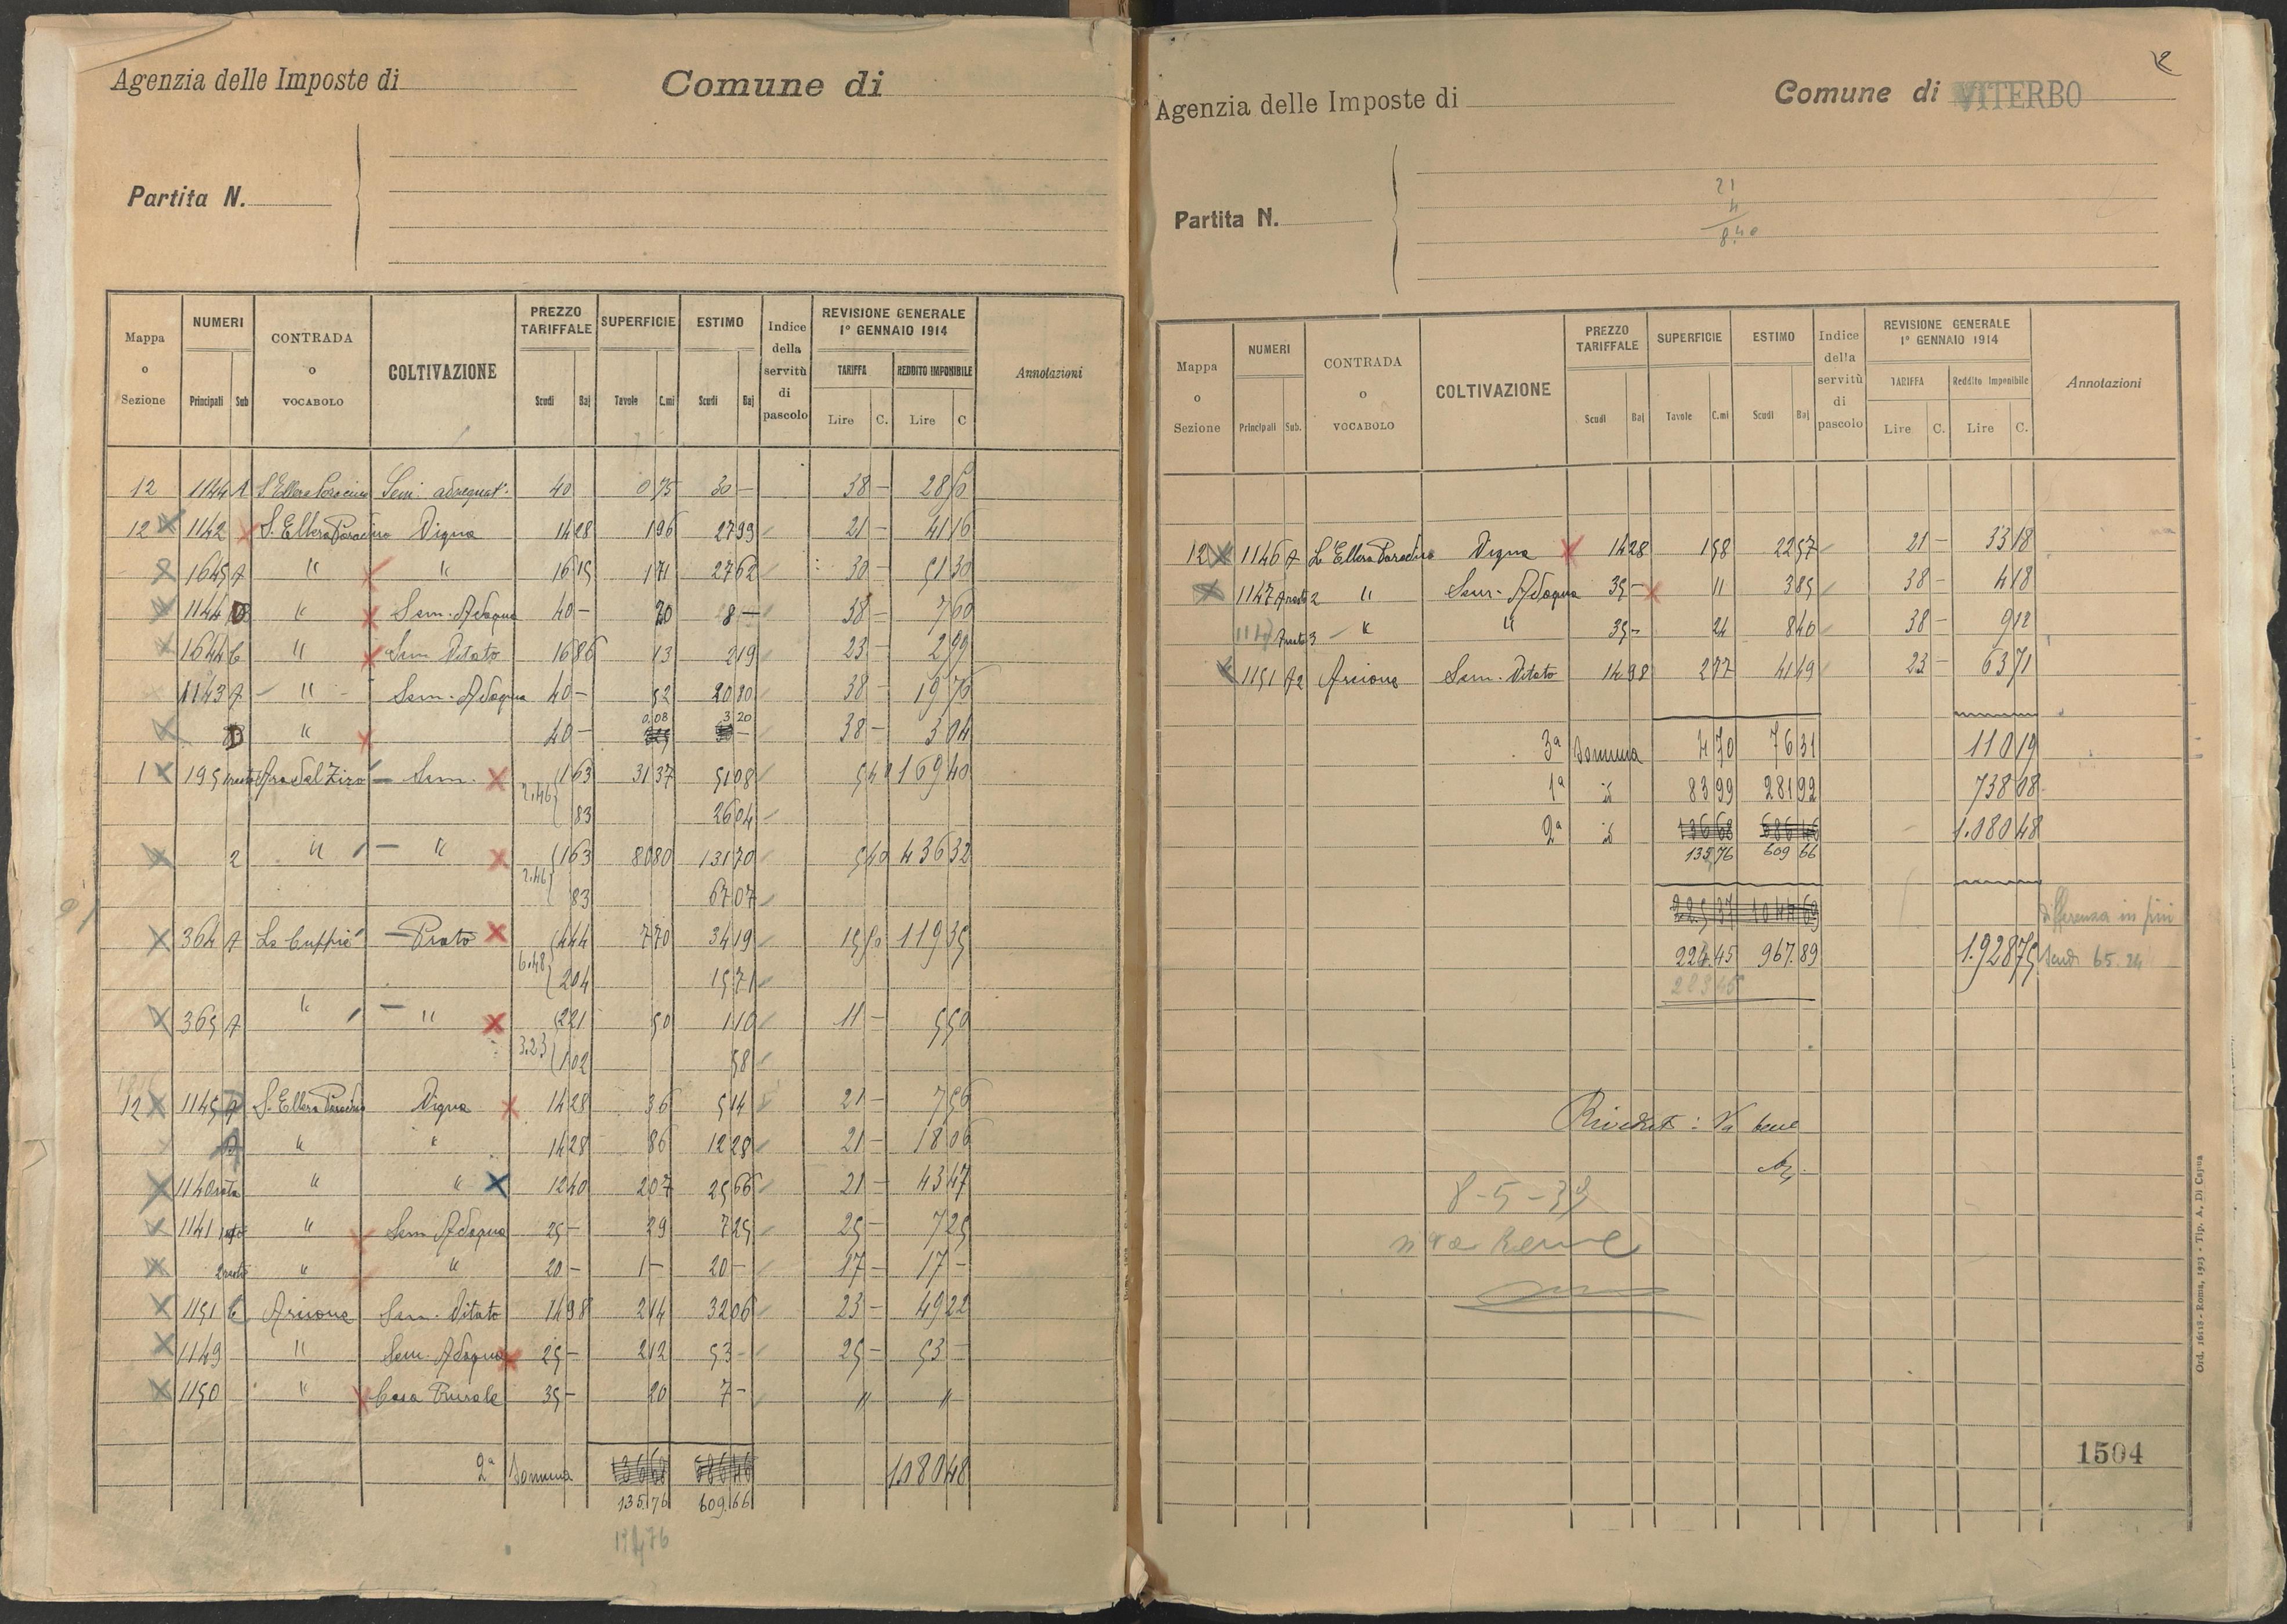 Agenzia delle Imposte di
Comune di
Partita N.
Mappa o Sezione | NUMERI Principali Sub | CONTRADA o VOCABOLO | COLTIVAZIONE | PREZZO TARIFFALE Scudi Baj | SUPERFICIE Tavole C.mi | ESTIMO Scudi Baj | Indice della servitù di pascolo | REVISIONE GENERALE 1º GENNAIO 1914 TARIFFA Lire C. REDDITO IMPONIBILE Lire C | Annotazioni
12 1144 A S. Ellera Sem. adacquat. 40 0 75 30 — 38 — 28 50
12 1142 S. Ellera Paradiso Vigna 14 28 1 96 27 99 21 — 41 16
1645 A " " 16 15 1 71 27 62 30 — 51 30
1144 D " Sem. Adaqua 40 — 20 8 — 38 — 7 60
1644 C " Sem. Vitato 16 86 13 2 19 23 — 2 99
1143 A " Sem. Adaqua 40 — 52 20 80 38 — 19 76
D " 40 — 0,08 3 20 38 — 3 04
1 195 1 resto Sem. 1 63 31 37 51 08 5 40 169 40
2.46
83 26 04
2 " " 1 63 80 80 131 70 5 40 436 32
2.46
83 67 07
364 A La Cuppie Prato 4 44 7 70 34 19 15 50 119 35
6.48
2 04 15 71
365 A " " 2 21 50 1 10 11 — 5 50
3.23
1 02 58
12 1145 A S. Ellera Paradiso Vigna 14 28 36 5 14 21 — 7 56
" " 14 28 86 12 28 21 — 18 06
1140 rata " " 12 40 2 07 25 66 21 — 43 47
1141 " Sem Adaqua 25 — 29 7 25 25 — 7 25
2 resto " " 20 — 1 — 20 — 17 — 17 —
1151 C Arcione Sem. Vitato 14 98 2 14 32 06 23 — 49 22
1149 " Sem. Adaqua 25 — 2 12 53 — 25 — 53 —
1150 " Casa Rurale 35 — 20 7 — " "
2ª Somma 136 68 1.080 48
135 76 609 66
Agenzia delle Imposte di
Comune di VITERBO
21
4
8.40
Partita N.
Mappa o Sezione | NUMERI Principali Sub. | CONTRADA o VOCABOLO | COLTIVAZIONE | PREZZO TARIFFALE Scudi Baj | SUPERFICIE Tavole C.mi | ESTIMO Scudi Baj | Indice della servitù di pascolo | REVISIONE GENERALE 1º GENNAIO 1914 TARIFFA Lire C. Reddito Imponibile Lire C. | Annotazioni
12 1146 A S. Ellera Paradiso Vigna 14 28 1 58 22 57 21 — 33 18
1147 2 " Sem. Adaqua 35 — 11 3 85 38 — 4 18
3 " " 35 — 24 8 40 38 — 9 12
1151 A2 Arcione Sem. Vitato 14 98 2 77 41 49 23 — 63 71
3ª Somma 4 70 76 31 110 19
1ª id 83 99 281 92 738 08
2ª id 136 68 686 46 1.080 48
135 76 609 66
225 37 1044 69
differenza in più
224.45 967.89 1.928 75 Scudi 65.24
Riveduto: Va bene
8-5-39
va bene
1504
Ord. 16118 - Roma, 1923 - Tip. A. Di Capua